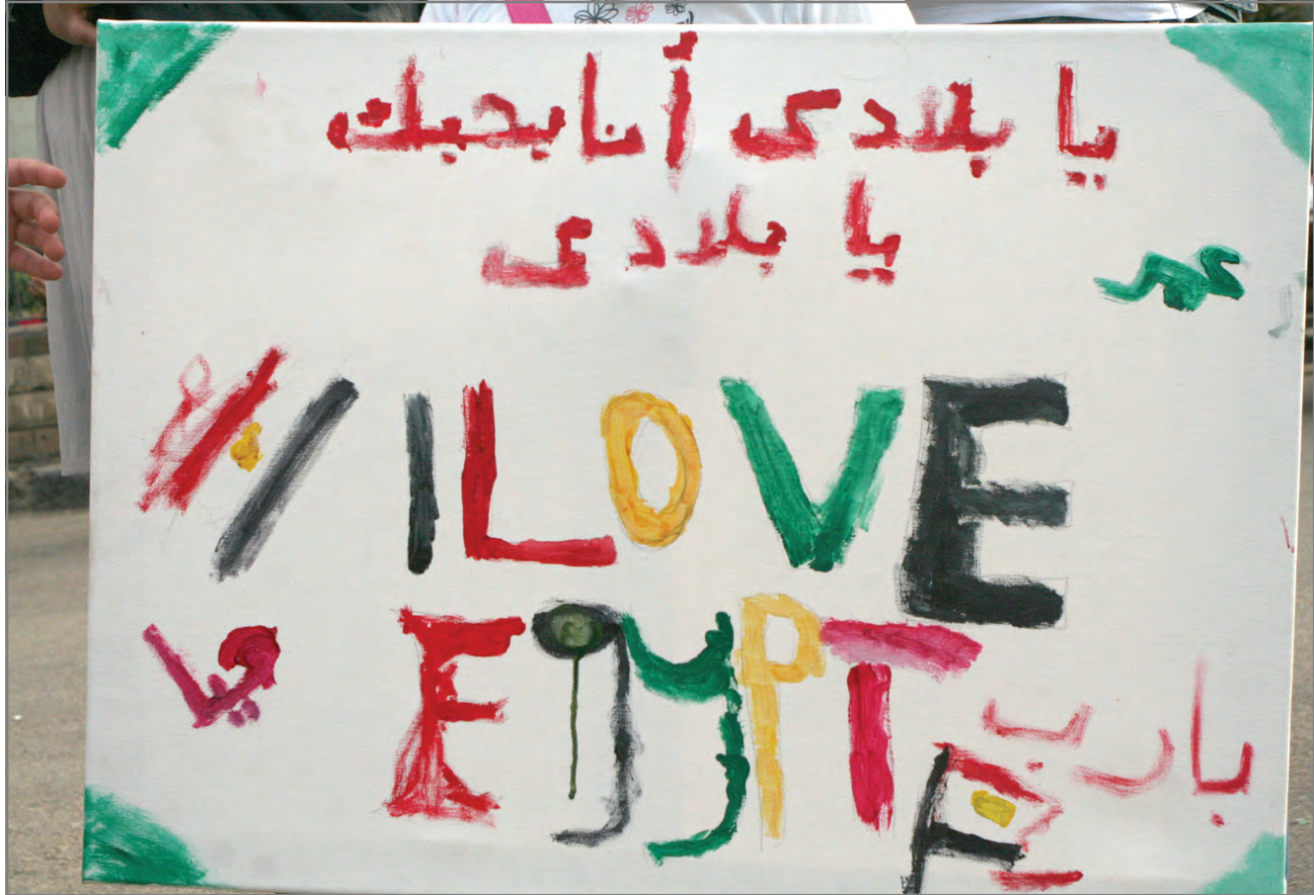 يا بلادى أنا بحبك
يا بلادى
عمر
I LOVE
EGYPT
بارب